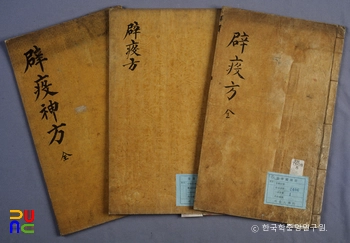 辟疫神方
全
辟疫方
辟疫方
全
© 한국학중앙연구원